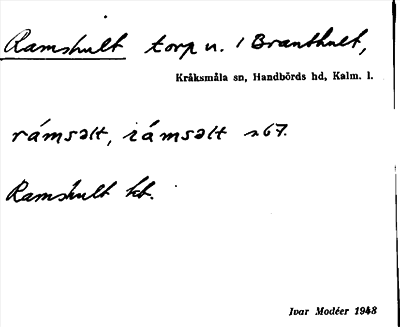 Ramshult torp u. / Branthult,
Kråksmåla sn, Handbörds hd, Kalm. l.
rámsəlt, rámsəlt s67.
Ramshult kt.
Ivar Modéer 1948